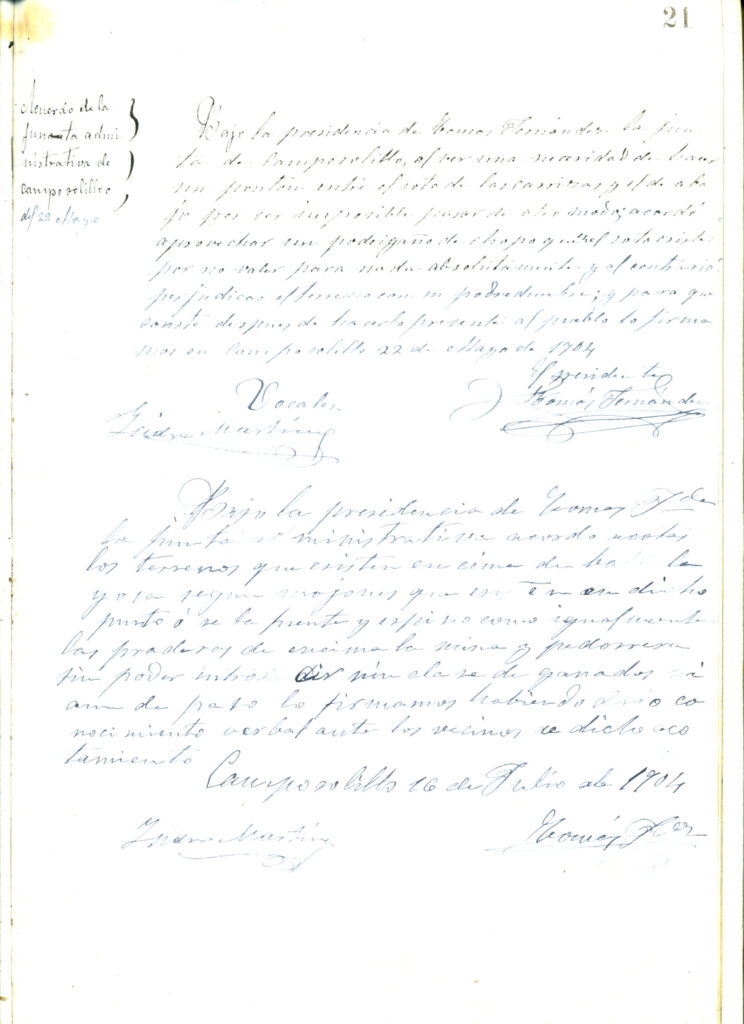 21
Acuerdo de la
junanta admi
nistrativa de
camposolillo
del 22 Mayo
Bajo la presidencia de Tomas Fernández la jun
ta de Camposolillo, al ver una necesidad de hacer
un pontón entre el soto de las carrizas y el de aba
jo por ser imposible pasar de otro modo; acordó
aprovechar un podrigaño de chopo que en el soto existe
por no valer para nada absolutamente y al contrario
perjudicar el terreno con su podredumbre; y para que
conste despues de hacerlo presente al pueblo lo firma
mos en Camposolillo 22 de Mayo de 1904
El presidente
Vocales
Tomás Fernández
Isidro Martínez
Bajo la presidencia de Tomas Fdez
la junta ministrativa acordo acotar
los terrenos que existen en cima de la
y osa segun mojones que en dicho
punto ó se la fuente y espino como igualmente
las praderas de encima la mina y pedorrera
sin poder intro dir nin clase de ganados ni
aun de paso lo firmamos habiendo dado co
nocimiento verbal ante los vecinos de dicho aco
tamiento
Camposolillo 16 de Julio de 1904
Isidro Martínez
Tomás Fdez